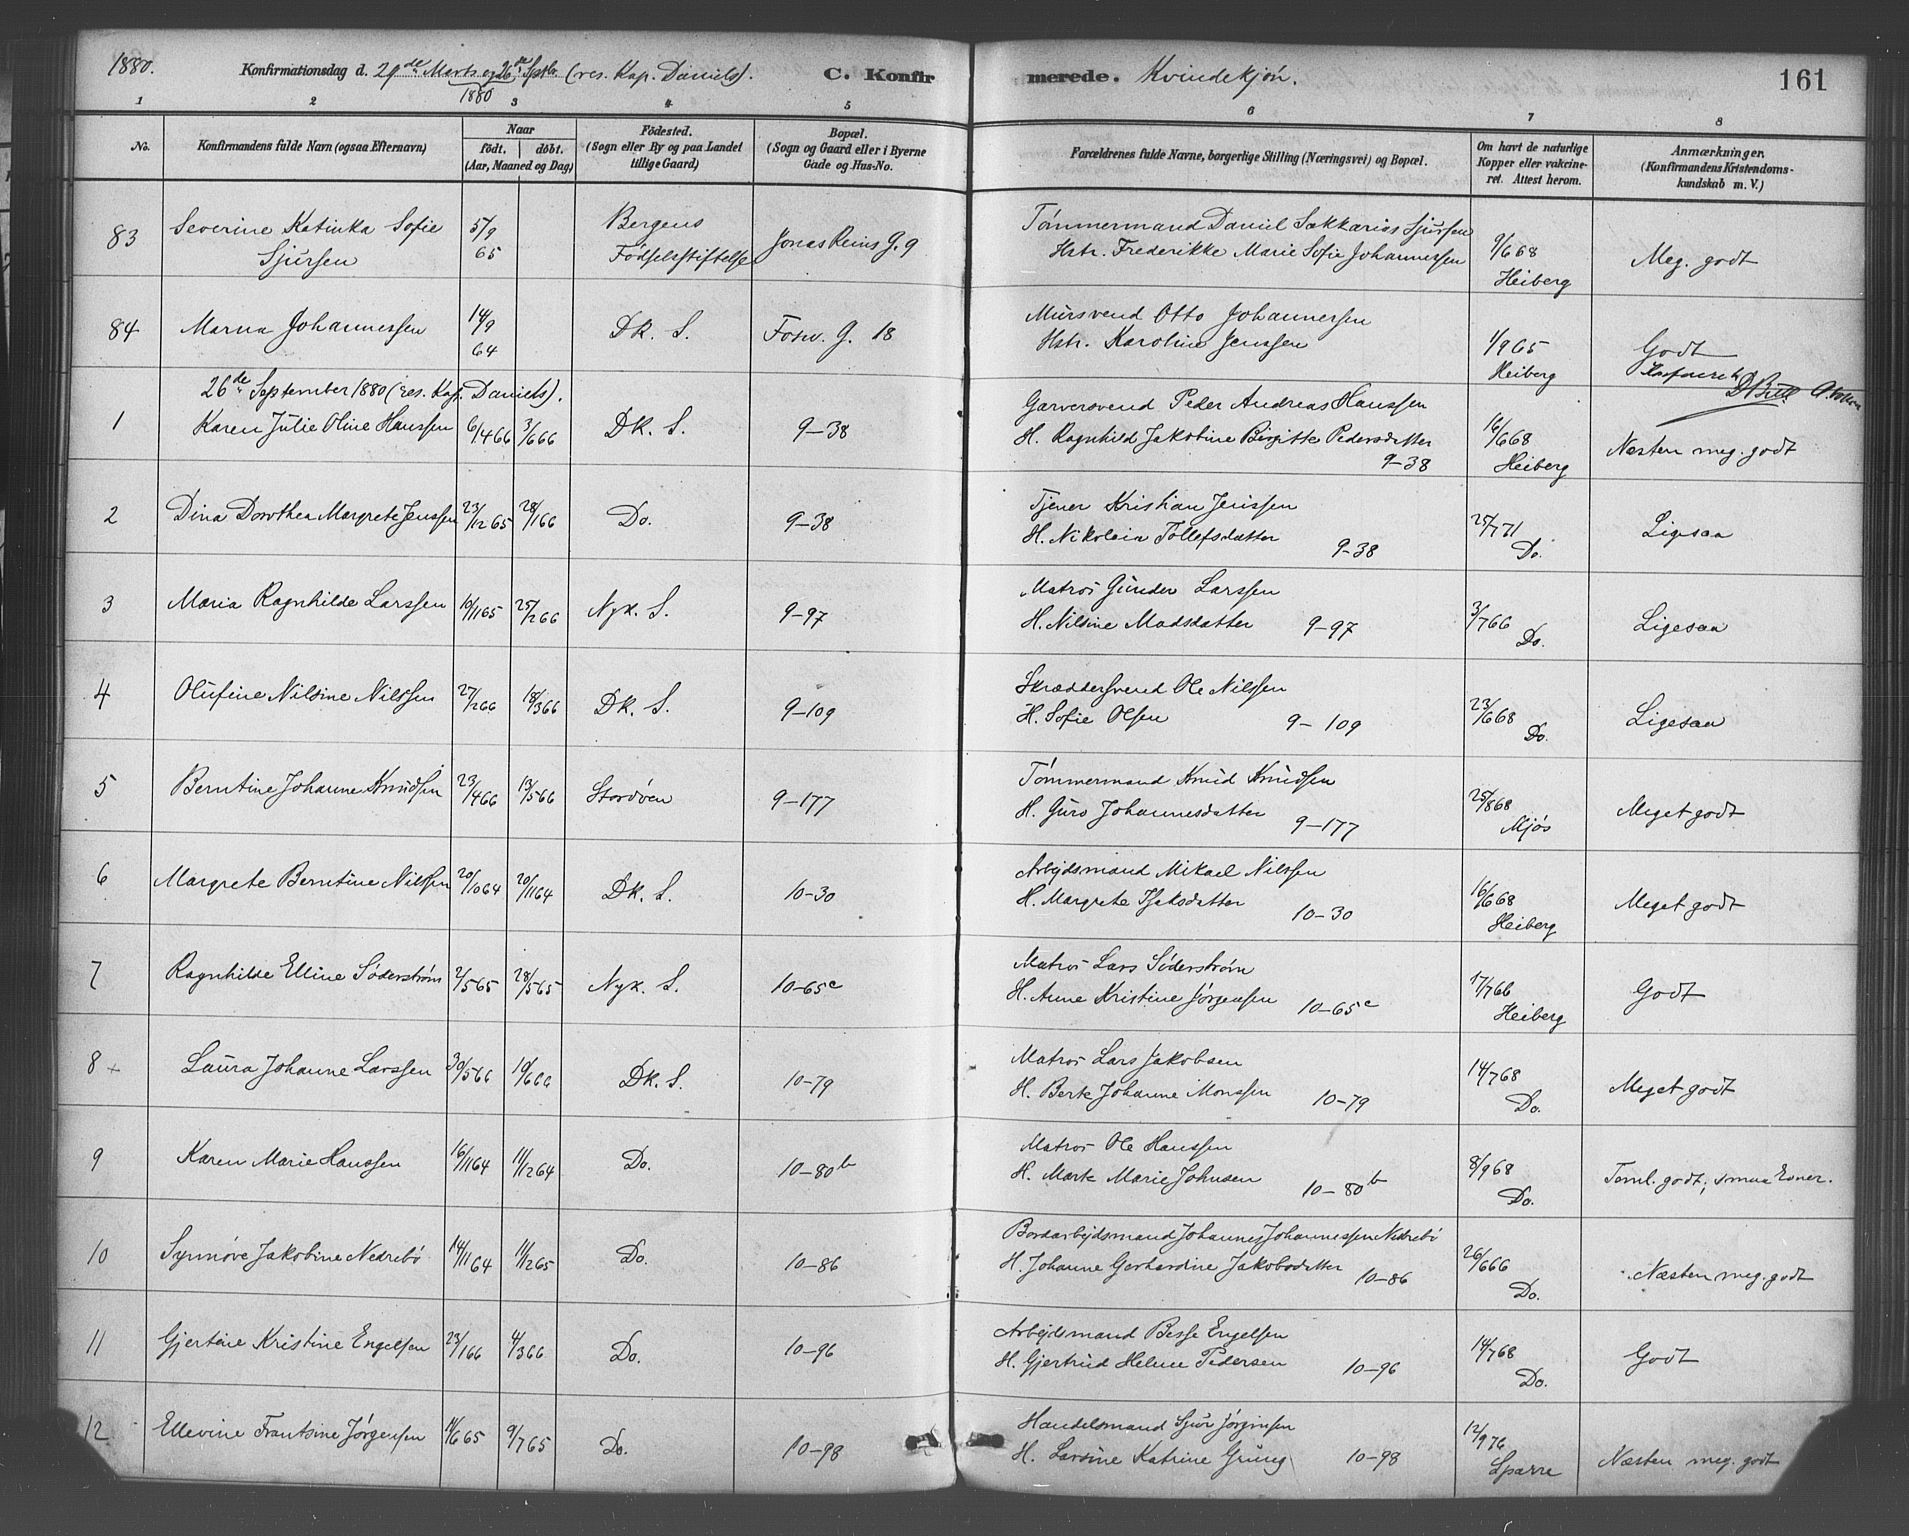 1880. Konfirmationsdag d. 29de Marts og 26de Septbr (res. Kap. Daniels). C. Konfirmerede. Kvindekjøn. 161
1880
1 2 3 4 5 6 7 8
No. Konfirmandens fulde Navn (ogsaa Efternavn) Naar født. døbt. (Aar, Maaned og Dag) Födested. (Sogn eller By og paa Landet tillige Gaard) Bopæl. (Sogn og Gaard eller i Byerne Gade og Hus-No. Forældrenes fulde Navne, borgerlige Stilling (Næringsvei) og Bopæl. Om havt de naturlige Kopper eller vakcineret. Attest herom. Anmærkninger. (Konfirmandens Kristendomskundskab m. V.)
83 Severine Katinka Sofie Sjursen 5/9 65 Bergens Fødselsstiftelse Jonas Reins G. 9 Tømmermand Daniel Sakkarias Sjursen
Hstr. Frederikke Marie Sofie Johannessen 9/6 68 Heiberg Meg. godt
84 Marna Johannessen 14/9 64 Dk. S. Fosw. G. 18 Mursvend Otto Johannessen
Hstr. Karoline Jenssen 1/9 65 Heiberg Godt
26de September 1880 (res. Kap. Daniels).
1 Karen Julie Oline Hanssen 6/4 66 3/6 66 Dk. S. 9–38 Garversvend Peder Andreas Hanssen
H. Ragnhild Jakobine Birgitte Pedersdatter 9–38 16/6 68 Heiberg Næsten meg. godt
2 Dina Dorothea Margrete Jenssen 23/12 65 28/1 66 Do. 9–38 Tjener Kristian Jenssen
H. Nikolaia Tollefsdatter 9–38 25/7 71 Do. Ligesaa
3 Maria Ragnhilde Larssen 10/11 65 25/2 66 Nyk. S. 9–97 Matros Gunder Larssen
H. Nilsine Madsdatter 9–97 3/7 66 Do. Ligesaa
4 Olufine Nilsine Nilssen 27/2 66 18/3 66 Dk. S. 9–109 Skræddersvend Ole Nilssen
H. Sofie Olsen 9–109 23/6 68 Do. Ligesaa
5 Berntine Johanne Knudsen 23/4 66 13/5 66 Stordøen 9–177 Tømmermand Knud Knudsen
H. Guro Johannesdatter 9–177 25/8 68 Mjøs Meget godt
6 Margrete Berntine Nilssen 20/10 64 20/11 64 Dk. S. 10–30 Arbejdsmand Mikael Nilssen
H. Margrete Isaksdatter 10–30 16/6 68 Heiberg Meget godt
7 Ragnhilde Elline Søderstrøm 2/5 65 28/5 65 Nyk. S. 10–65c Matros Lars Søderstrøm
H. Anne Kristine Jørgensen 10–65c 17/7 66 Heiberg Godt
8 + Laura Johanne Larssen 30/5 66 10/6 66 Dk. S. 10–79 Matros Lars Jakobsen
H. Berte Johanne Monssen 10–79 14/7 68 Do. Meget godt
9 Karen Marie Hanssen 16/11 64 11/12 64 Do. 10–80b Matros Ole Hanssen
H. Marte Marie Johnsen 10–80b 8/9 68 Do. Teml. godt; smaa Evner.
10 Synnøve Jakobine Nedrebø 14/11 64 11/12 65 Do. 10–86 Bordarbejdsmand Johannes Johannessen Nedrebø
H. Johanne Gerhardine Jakobsdatter 10–86 26/6 66 Do. Næsten meg. godt
11 Gjertine Kristine Engelsen 23/1 66 4/3 66 Do. 10–96 Arbejdsmand Besse Engelsen
H. Gjertrud Helene Pedersen 10–96 14/7 68 Do. Godt
12 Ellevine Frantsine Jørgensen 11/6 65 9/7 65 Do. 10–98 Handelsmand Sjur Jørgensen
H. Lardine Katrine Grung 10–98 12/9 76 Sparre Næsten meg. godt